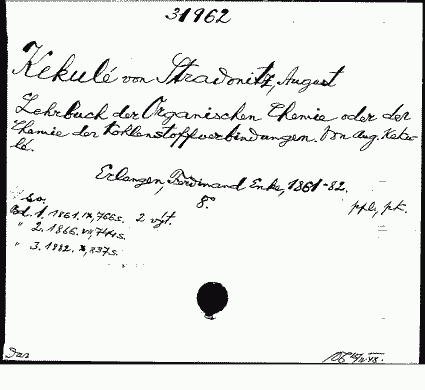 31962
Kekulé von Stradonitz, August
Lehrbuch der Organischen Chemie oder der
Chemie der Kohlenstoffverbindungen. Von Aug. Keku-
lé.
Erlangen, Ferdinand Enke, 1861-82.
8°
ppl., pk.
Bd. 1. 1861. IX, 766 s. 2 výt.
" 2. 1866. VII, 744 s.
" 3. 1882. X, 237 s.
Dar